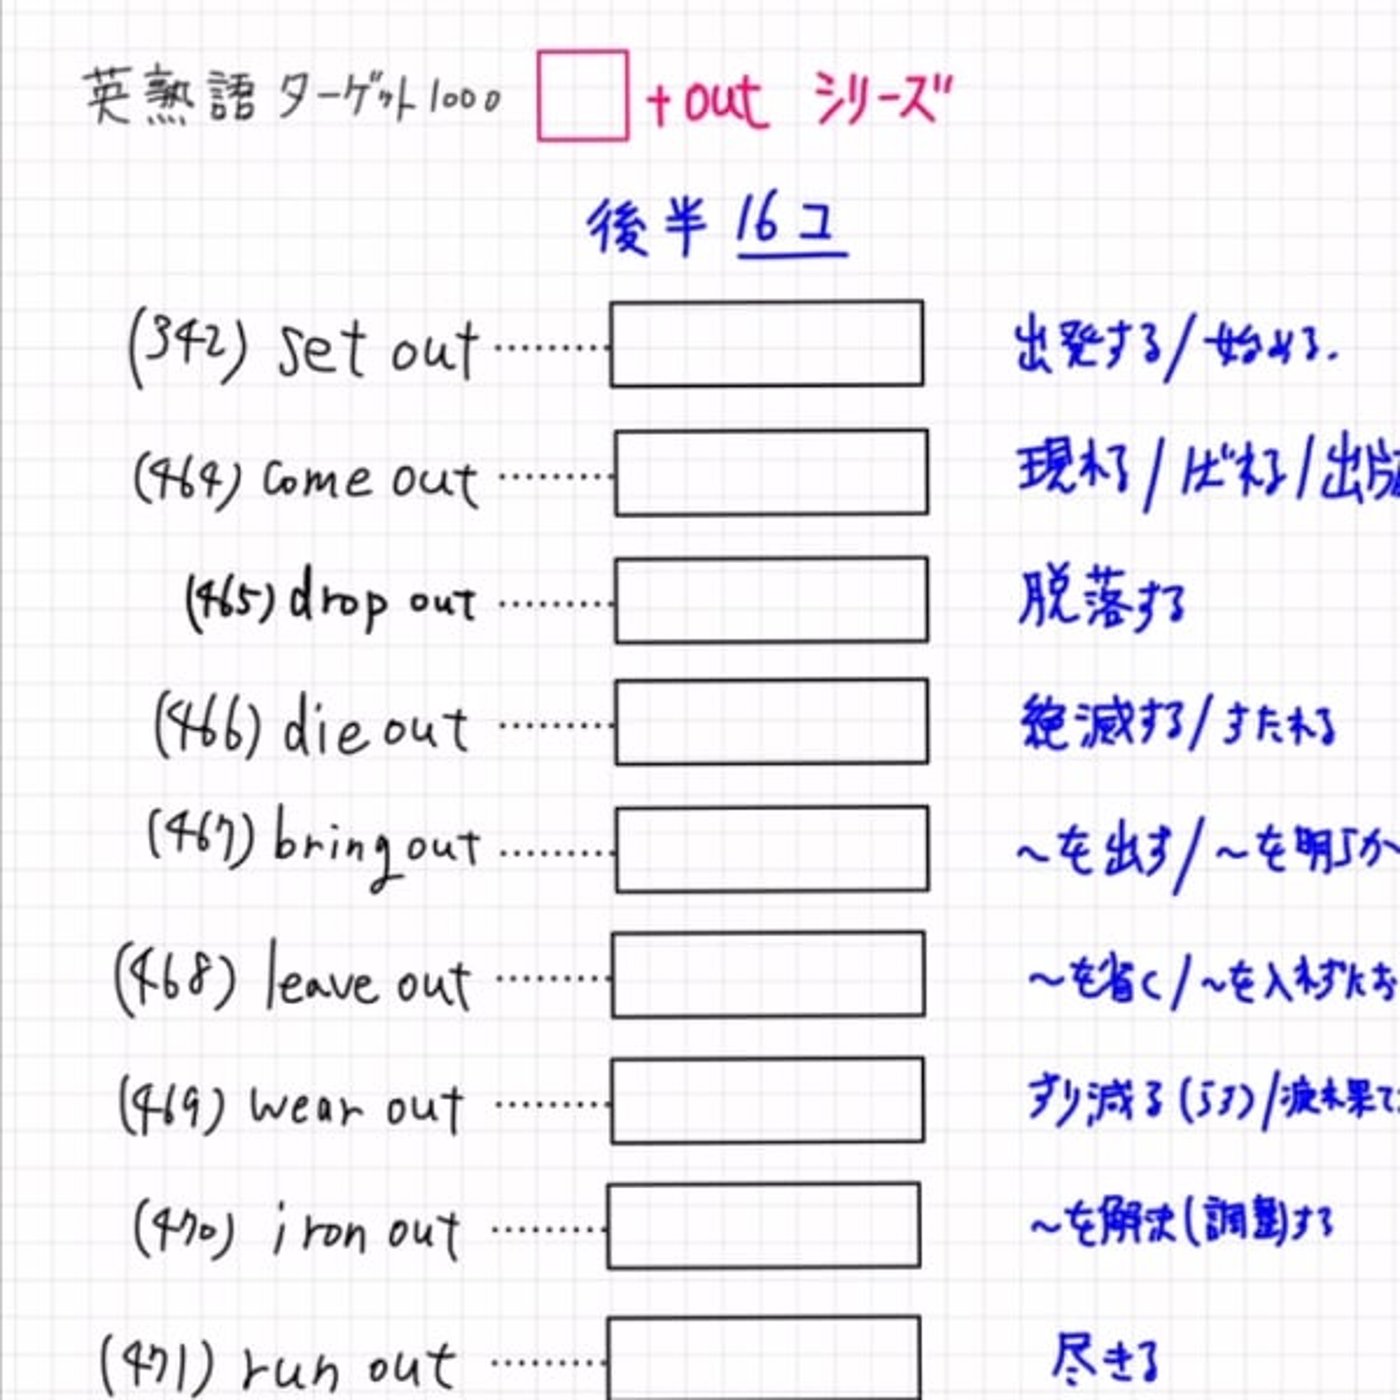 英熟語ターゲット1000 □+out シリーズ
後半 16コ
(342) set out 出発する/始める.
(464) come out 現れる/ばれる/出版
(465) drop out 脱落する
(466) die out 絶滅する/すたれる
(467) bring out ~を出す/~を明らか
(468) leave out ~を省く/~を入れずにお
(469) wear out すり減る(らす)/疲れ果て
(470) iron out ~を解決(調整)する
(471) run out 尽きる